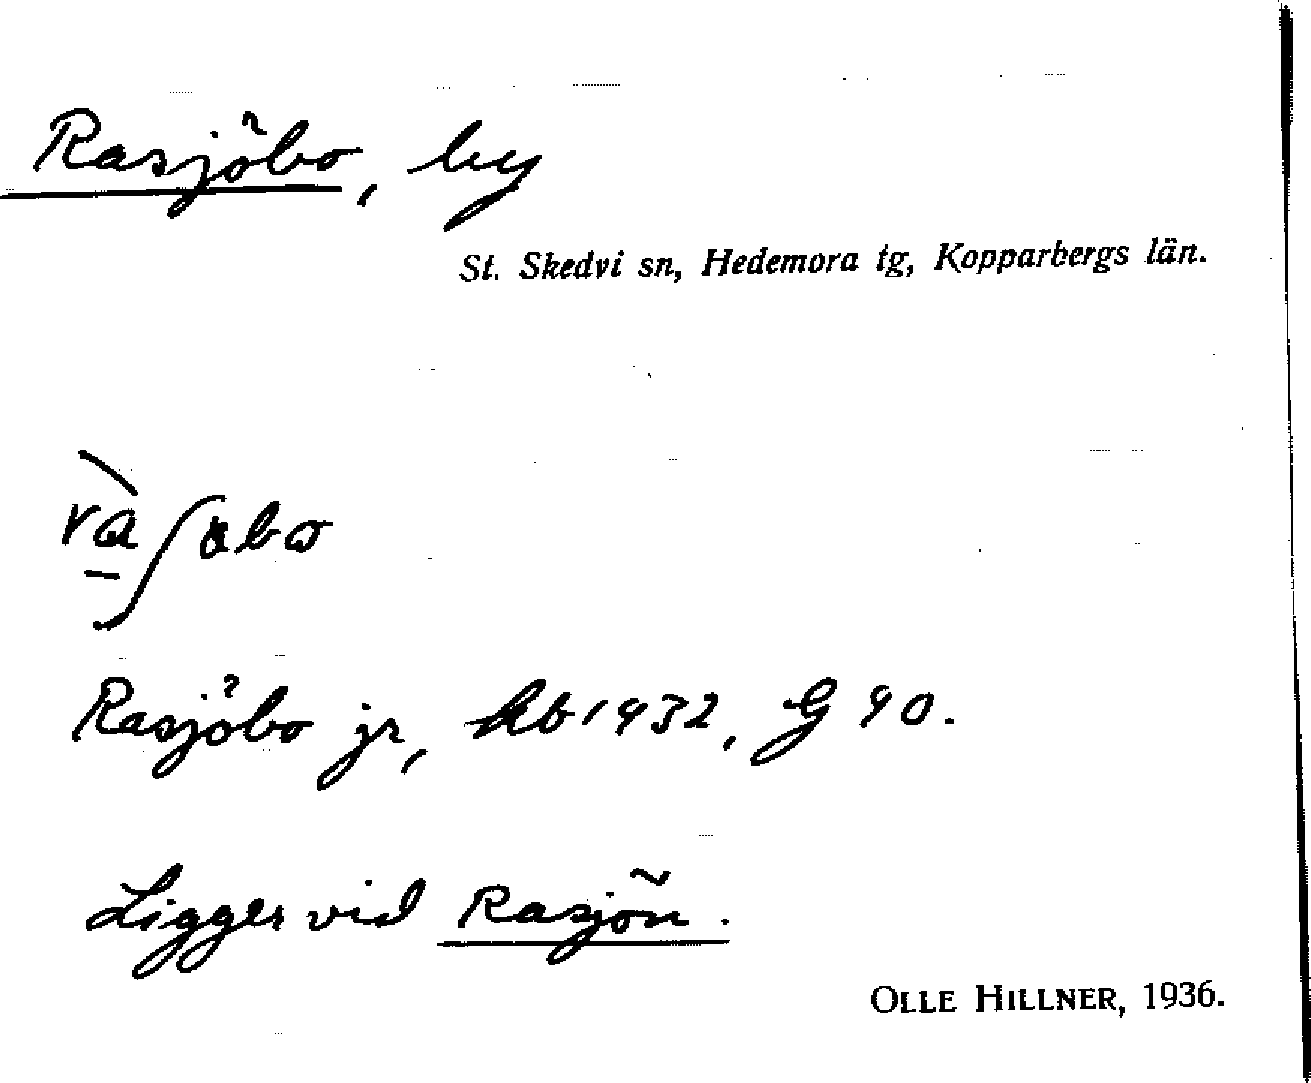 Rasjöbo, by
St. Skedvi sn, Hedemora tg, Kopparbergs län.
rà̱ʃɑbɷ
Rasjöbo jr, kb 1932, G 90.
Ligger vid Rasjön.
OLLE HILLNER, 1936.